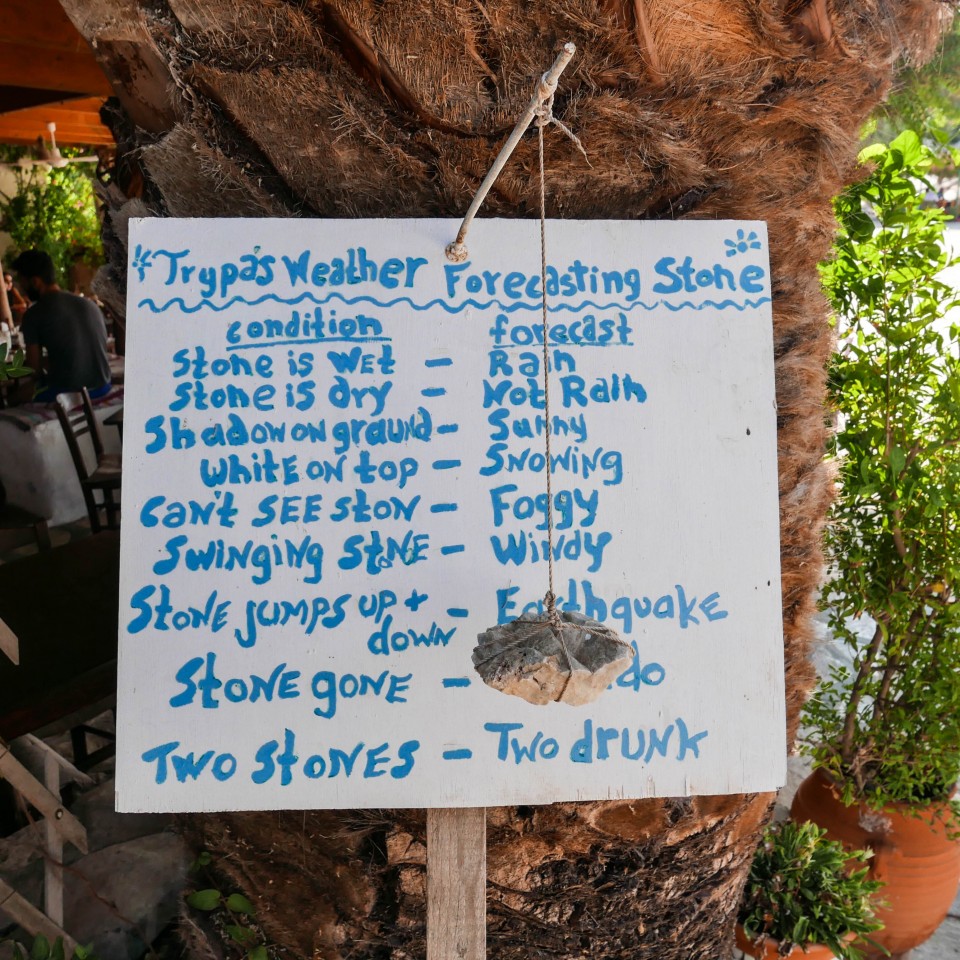 Trypa's Weather Forecasting Stone
condition forecast
Stone is WET - Rain
Stone is dry - Not Rain
Shadow on ground - Sunny
White on top - Snowing
Can't SEE ston - Foggy
Swinging StoNE - Windy
Stone jumps up + down - Earthquake
Stone gone -
Two stones - Two drunk